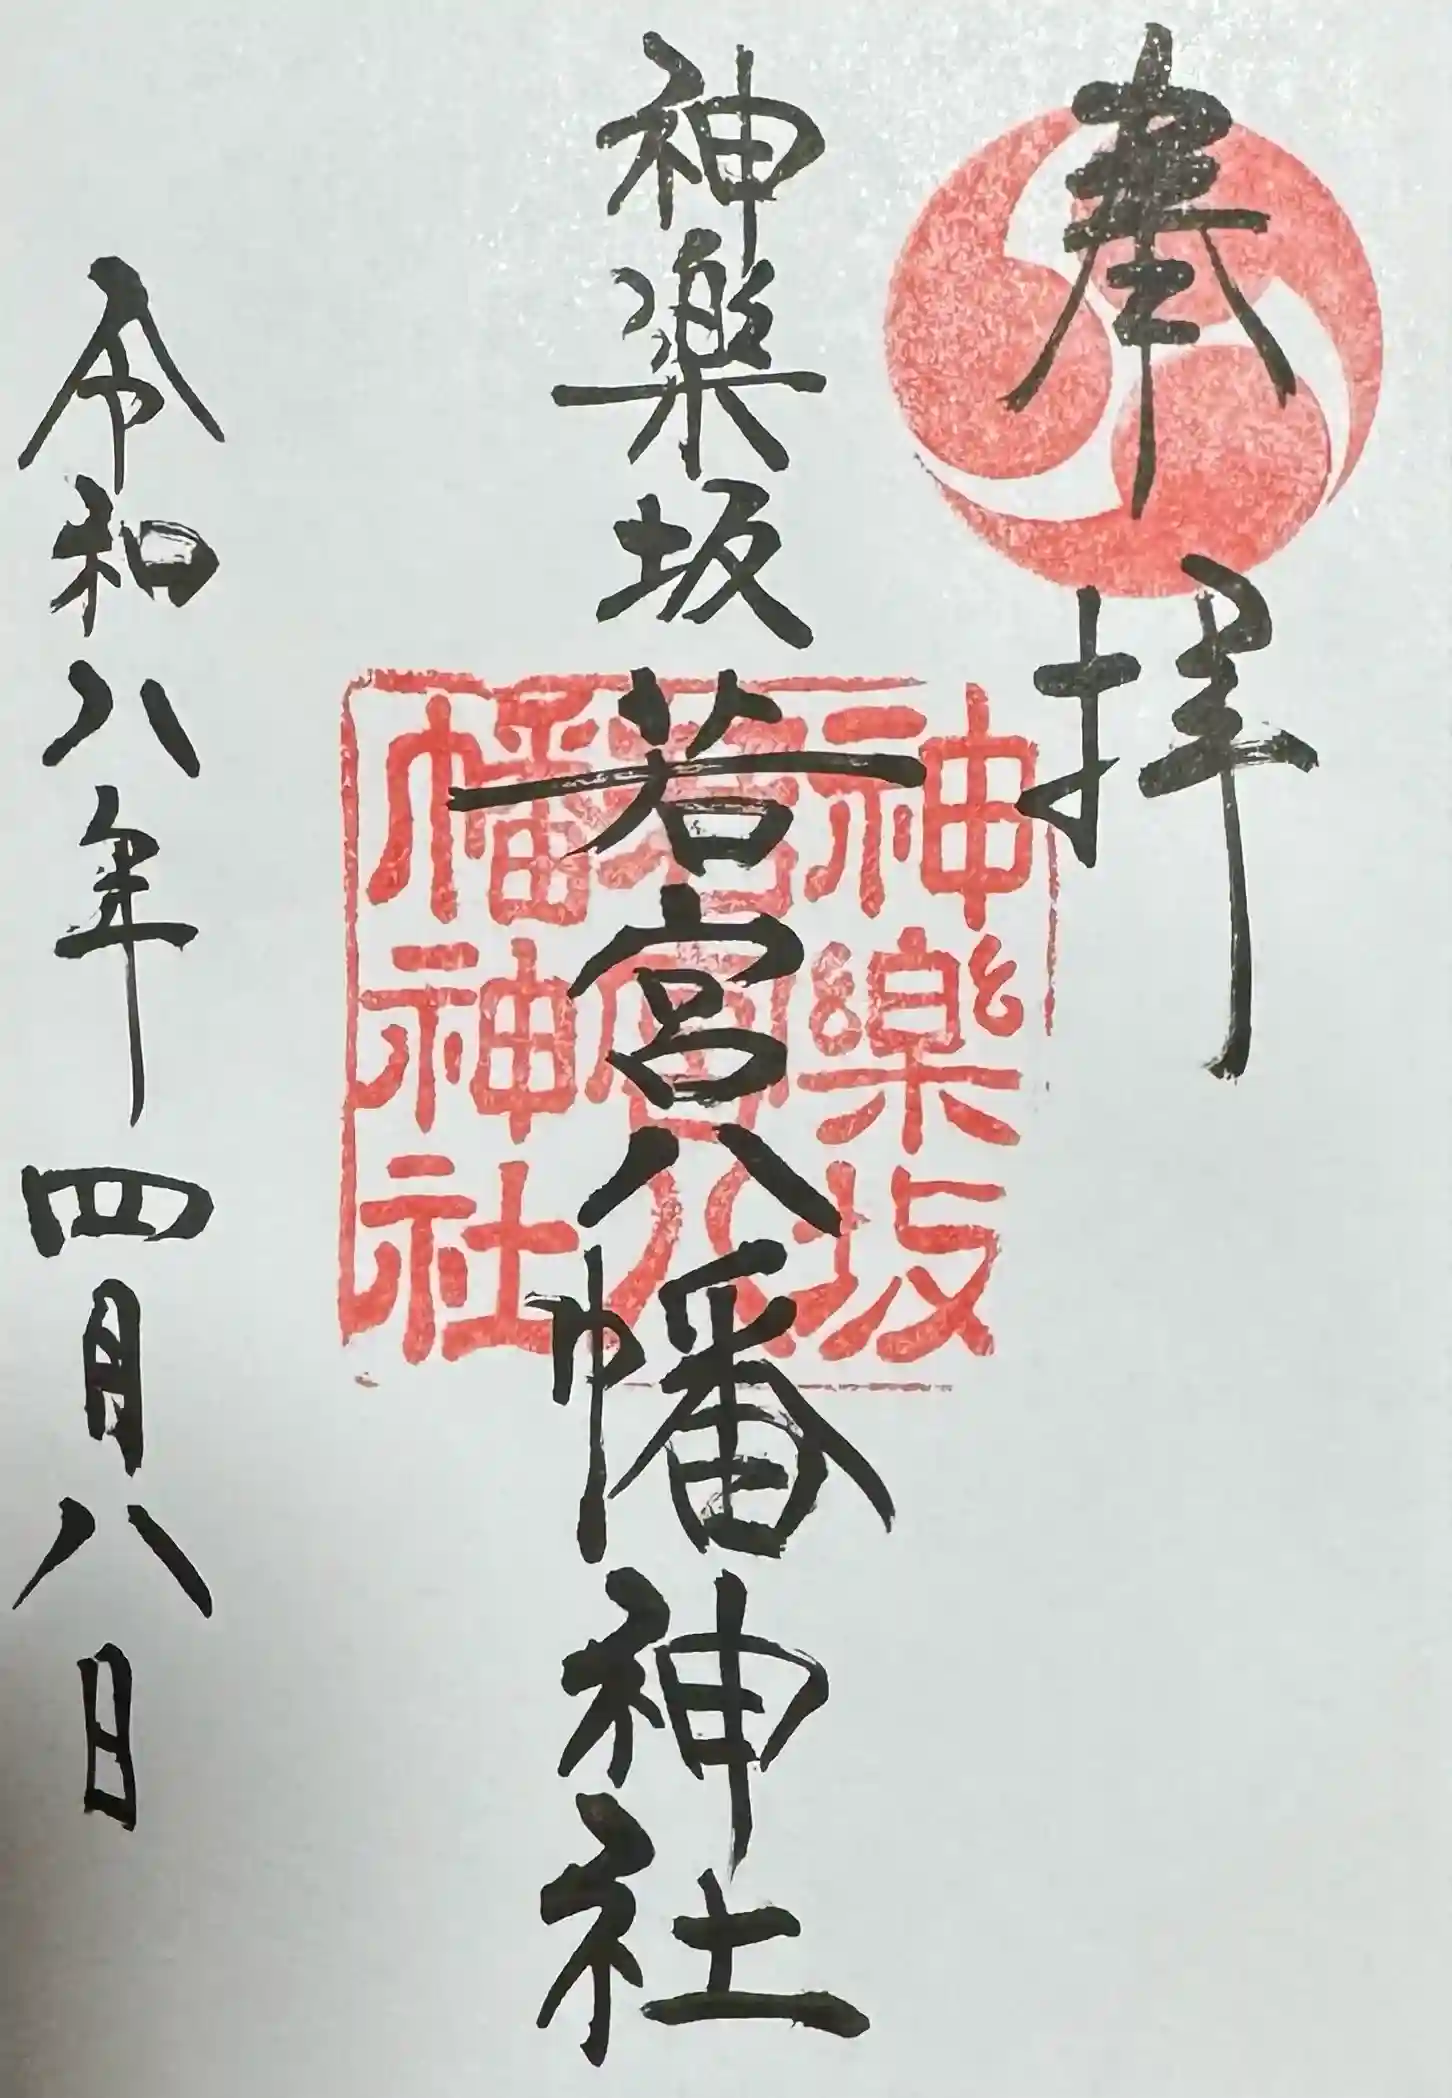 奉拝
神楽坂若宮八幡神社
神樂坂
若宮八
幡神社
令和八年四月八日